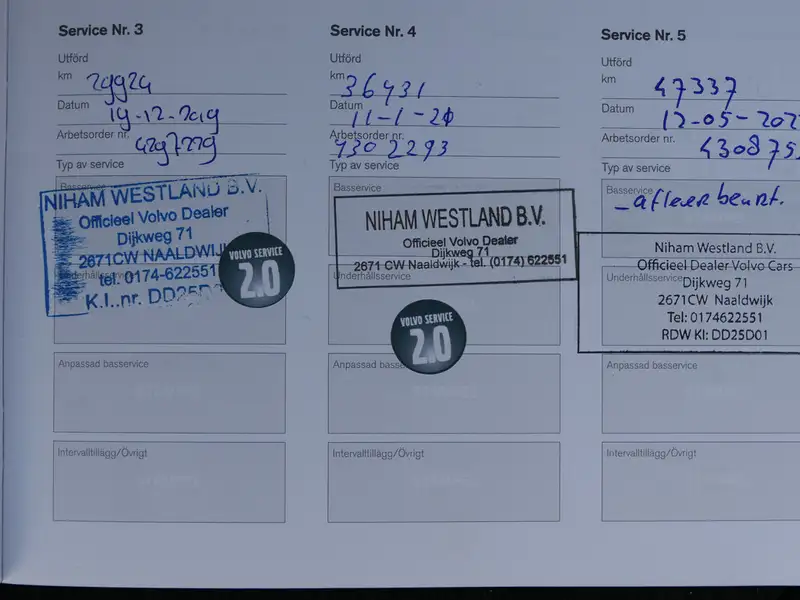 Service Nr. 3
Utförd
km 29924
Datum 19-12-2019
Arbetsorder nr. 4297229
Typ av service
Basservice
NIHAM WESTLAND B.V.
Officieel Volvo Dealer
Dijkweg 71
2671CW NAALDWIJ
tel. 0174-622551
K.I..nr. DD25D
VOLVO SERVICE
2.0
Underhållsservice
Anpassad basservice
Intervalltillägg/Övrigt
Service Nr. 4
Utförd
km 36431
Datum 11-1-21
Arbetsorder nr.
4302293
Typ av service
Basservice
NIHAM WESTLAND B.V.
Officieel Volvo Dealer
Dijkweg 71
2671 CW Naaldwijk - tel. (0174) 622551
Underhållsservice
VOLVO SERVICE
2.0
Anpassad basse
Intervalltillägg/Övrigt
Service Nr. 5
Utförd
km 47337
Datum 12-05-202
Arbetsorder nr. 430875
Typ av service
Basservice
Niham Westland B.V.
Officieel Dealer Volvo Cars
Underhållsservice
Dijkweg 71
2671CW Naaldwijk
Tel: 0174622551
RDW KI: DD25D01
Anpassad basservice
Intervalltillägg/Övrigt